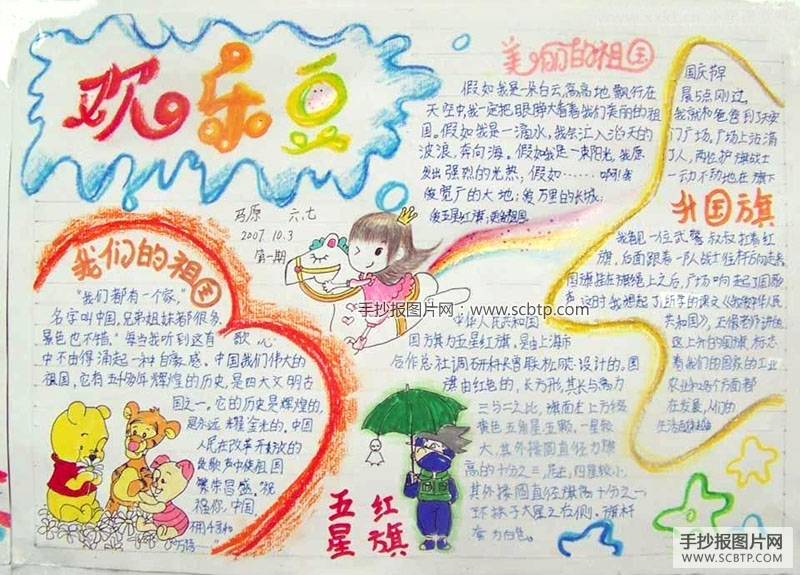 欢乐豆
马原 六.七
2007.10.3
第一期
美好的祖国
假如我是一朵白云,高高地飘行在
天空中,我一定把眼睁大看看我们美丽的祖
国。假如我是一滴水,我会汇入滔天的
波浪,奔向海。假如我是一束阳光,我愿
发出强烈的光热,假如……啊!我
爱宽广的大地;爱万里的长城;
爱五星红旗;更爱祖国
国庆节早
晨5点刚过,
我就和爸爸到了天安
门广场。广场上站满
了人,两位护旗战士
一动不动地在旗下
升国旗
我看见一位武警叔叔扛着红
旗,后面跟着一队战士
国旗挂在旗绳上之后,广场响起了国歌
声,这时我想起了,所学的课文《我爱中华人民
共和国》,
这上升的国旗,标志
着我们的国家的工业
农业和各个方面都
在发展,人们的
生活
我们的祖国
"我们都有一个家,
名字叫中国,兄弟姐妹都很多,
景色也不错。"每当我听到这首歌,心
中不由得涌起一种自豪感。中国我们伟大的
祖国,它有五千多年辉煌的历史,是四大文明古
国之一。它的历史是辉煌的,
是永远
人民在改革开放的
使祖国
繁荣昌盛。祝
福你,中国,
中华人民共和国
国旗为五星红旗,是由上海市
合作总社调研科长曾联松 设计的。国
旗由红色的,长方形,其长与高为
三与二之比,旗面左上方缀
黄色五角星五颗,一星较
大,其外接圆直径为旗
高的十分之三,居左,四星较小,
其外接圆直径旗高十分之一
环拱于大星之右侧。旗杆
套为白色。
五星
红旗
手抄报图片网:www.scbtp.com
手抄报图片网
WWW.SCBTP.COM